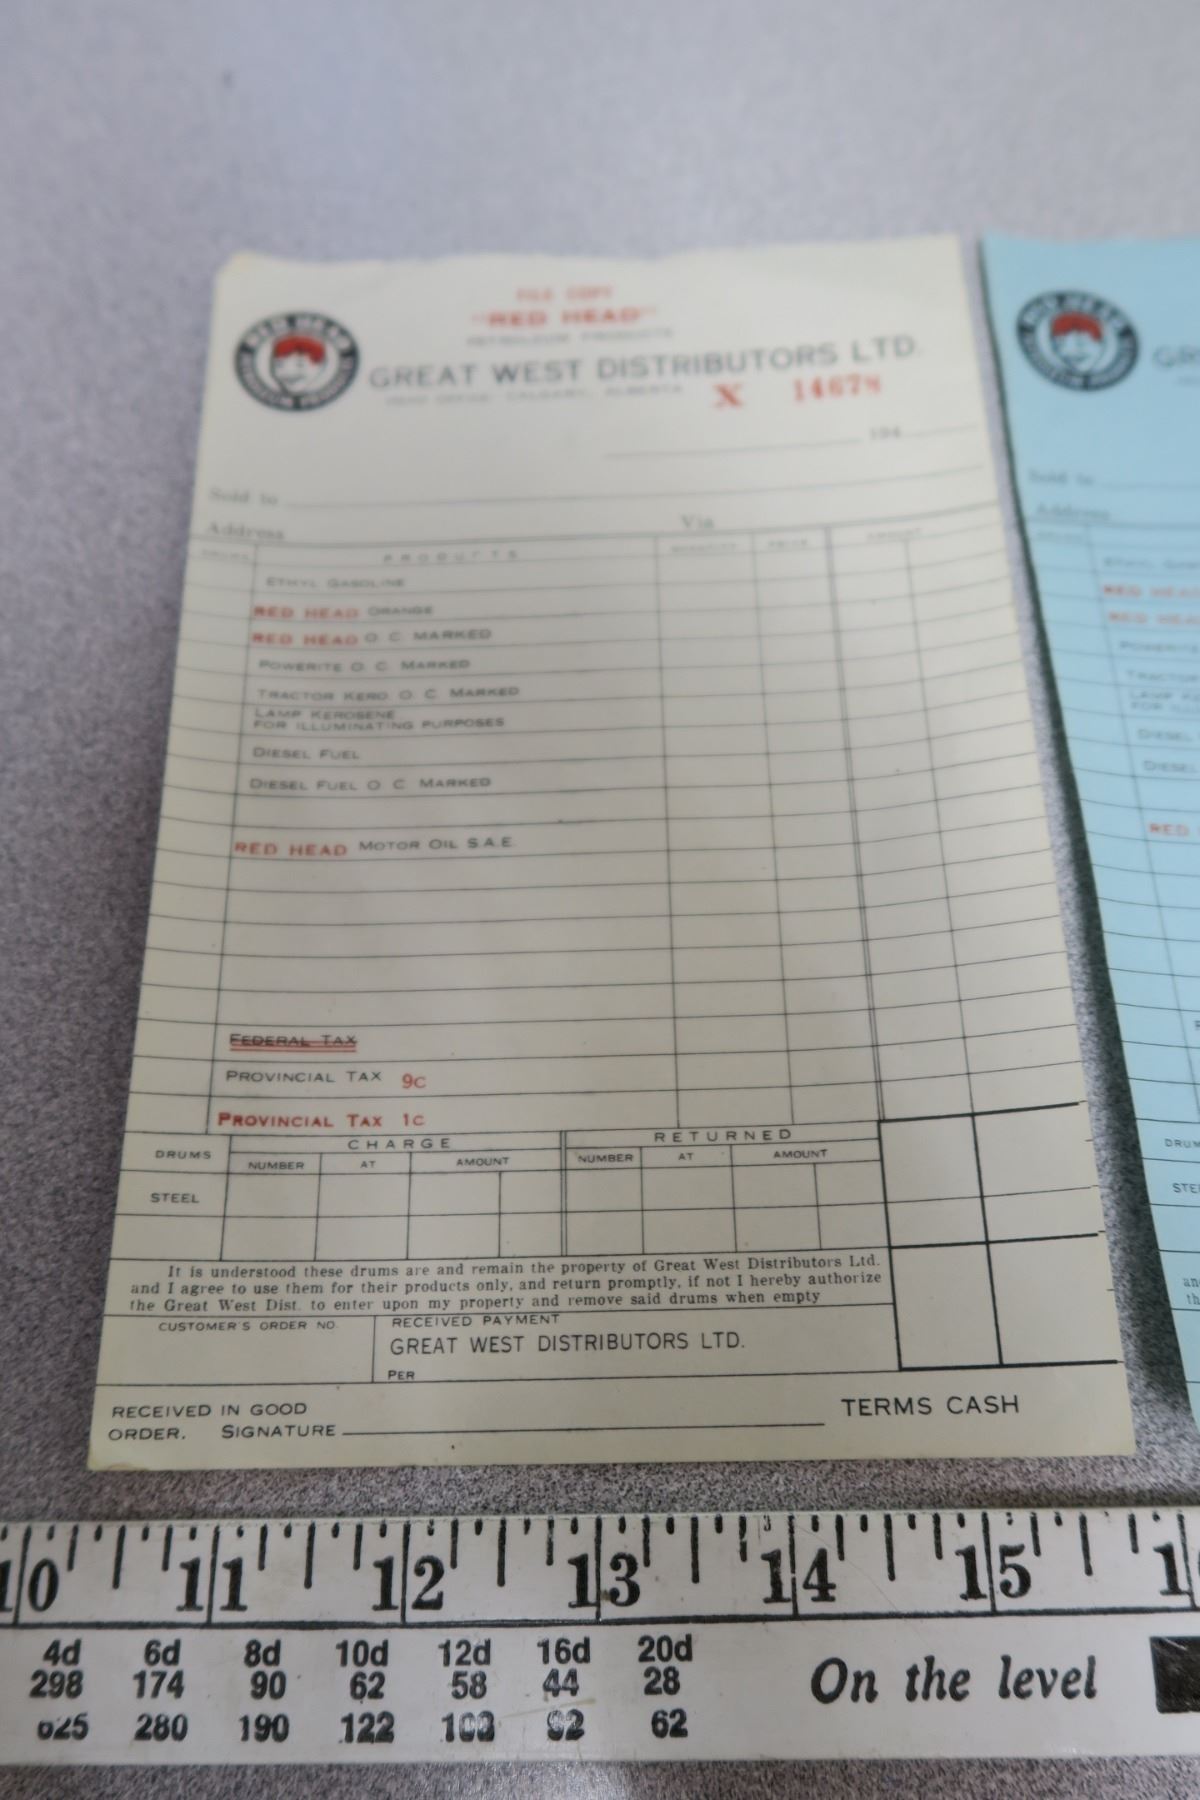 FILE COPY
"RED HEAD"
PETROLEUM PRODUCTS
RED HEAD
PETROLEUM PRODUCTS
GREAT WEST DISTRIBUTORS LTD.
HEAD OFFICE: CALGARY, ALBERTA
X 14678
194
Sold to
Address Via
DRUMS PRODUCTS QUANTITY PRICE AMOUNT
ETHYL GASOLINE
RED HEAD ORANGE
RED HEAD O. C. MARKED
POWERITE O. C. MARKED
TRACTOR KERO O. C. MARKED
LAMP KEROSENE
FOR ILLUMINATING PURPOSES
DIESEL FUEL
DIESEL FUEL O C MARKED
RED HEAD MOTOR OIL S.A.E.
FEDERAL TAX
PROVINCIAL TAX 9C
PROVINCIAL TAX 1C
DRUMS CHARGE RETURNED
NUMBER AT AMOUNT NUMBER AT AMOUNT
STEEL
It is understood these drums are and remain the property of Great West Distributors Ltd.
and I agree to use them for their products only, and return promptly, if not I hereby authorize
the Great West Dist. to enter upon my property and remove said drums when empty
CUSTOMER'S ORDER NO. RECEIVED PAYMENT
GREAT WEST DISTRIBUTORS LTD.
PER
RECEIVED IN GOOD
ORDER. SIGNATURE
TERMS CASH
RED HEAD
Sold to
Address
RED HEAD
RED HEAD
POWERITE
TRACTOR
DIESEL
DIESEL
RED
10 11 12 13 14 15
4d 6d 8d 10d 12d 16d 20d
298 174 90 62 58 44 28
625 280 190 122 62
On the level